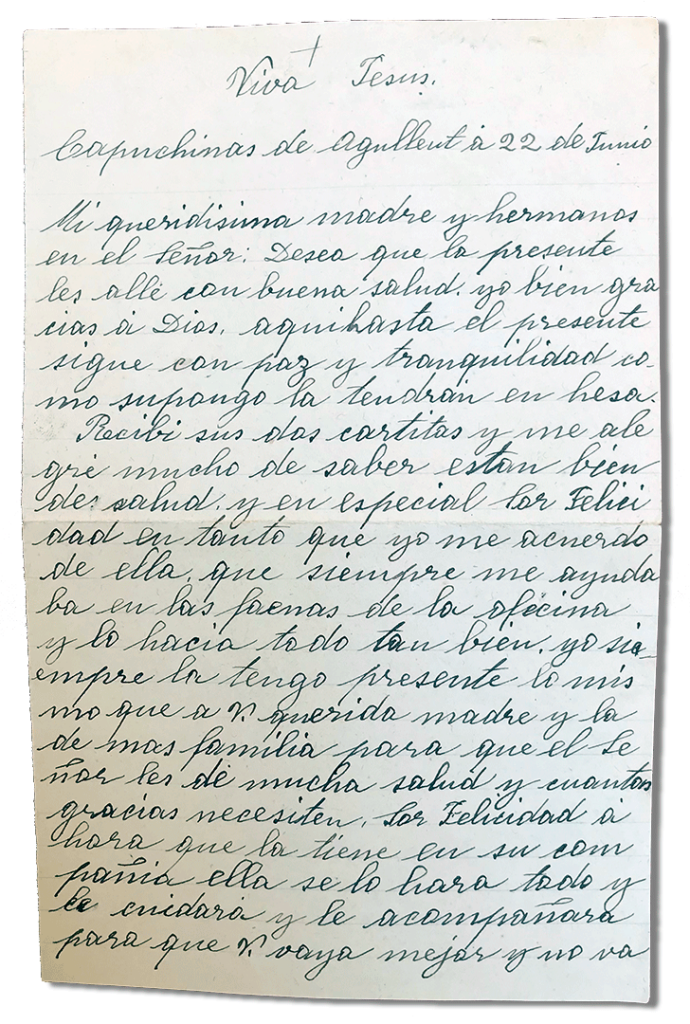 Viva Jesus.
Capuchinas de Agullent á 22 de Junio
Mi queridisima madre y hermanos
en el Señor: Deseo que la presente
les alle con buena salud. yo bien gra
cias á Dios. aquihasta el presente
sigue con paz y tranquilidad co-
mo supongo la tendrán en hesa.
Recibi sus dos cartitas y me ale
gré mucho de saber estan bien
de salud. y en especial Sor Felici
dad en tanto que yo me acuerdo
de ella. que siempre me ayuda
ba en las faenas de la oficina
y lo hacia todo tan bien. yo sie-
empre la tengo presente lo mis
mo que a V. querida madre y la
de mas familia para que el Se
ñor les dé mucha salud y cuantas
gracias necesiten. Sor Felicidad á
hora que la tiene en su com
pañia ella se lo hara todo y
le cuidará y le acompañara
para que V. vaya mejor y no va